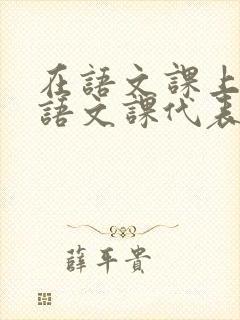 在語文課上
語文課代表
薛平貴